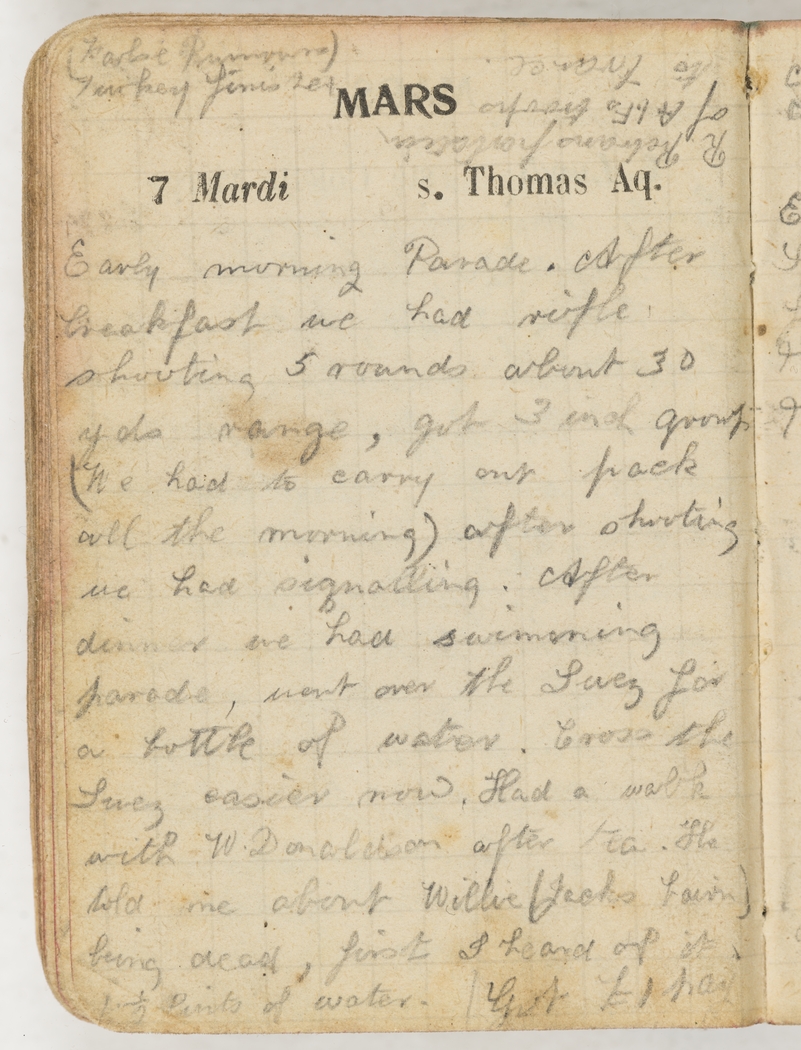 (False Rumours)
Turkey finished
MARS
R Retransportation
of A.I.F. troops
to France.
7 Mardi s. Thomas Aq.
Early morning Parade. After
breakfast we had rifle
shooting 5 rounds about 30
yds range, got 3 inch group
(We had to carry out pack
all the morning) after shooting
we had signalling. After
dinner we had swimming
parade, went over the Suez for
a bottle of water. Cross the
Suez easier now. Had a walk
with W. Donaldson after tea. He
told me about Willie (Jacks bairn)
being dead, first I heard of it.
1½ Pints of water. Got £1 pay